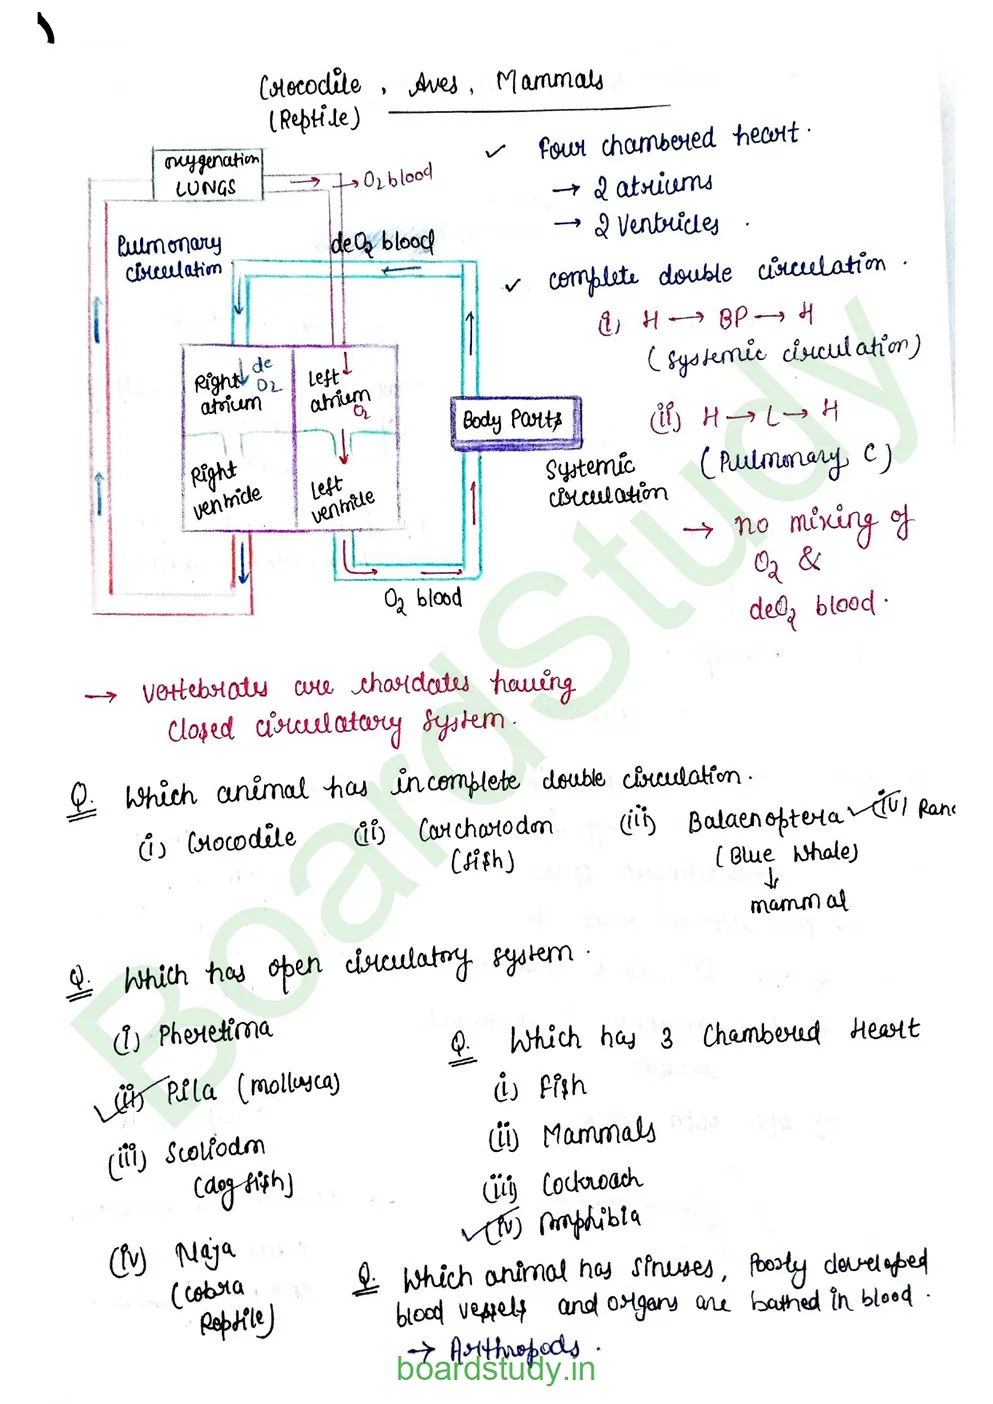 Crocodile, Aves, Mammals
(Reptile)
oxygenation
LUNGS
→ O2 blood
Pulmonary
circulation
deO2 blood
Right
atrium
de
O2
Left
atrium
O2
Right
ventricle
Left
ventricle
Body Parts
Systemic
circulation
O2 blood
✓ Four chambered heart.
→ 2 atriums
→ 2 Ventricles.
✓ complete double circulation.
(i) H → BP → H
(Systemic circulation)
(ii) H → L → H
(Pulmonary C)
→ no mixing of
O2 &
deO2 blood.
→ Vertebrates are chordates having
closed circulatary system.
Q. Which animal has incomplete double circulation.
(i) Crocodile (ii) Carcharodon (iii) Balaenoptera ✓(iv) Rana
(fish) (Blue Whale)
↓
mammal
Q. Which has open circulatory system.
(i) Pheretima
✓(ii) Pila (mollusca)
(iii) Scoliodon
(dog fish)
(iv) Naja
(cobra
Reptile)
Q. Which has 3 Chambered Heart
(i) Fish
(ii) Mammals
(iii) Cockroach
✓(iv) Amphibia
Q. Which animal has sinuses, Poorly developed
blood vessels and organs are bathed in blood.
→ Arthropods.
BoardStudy
boardstudy.in